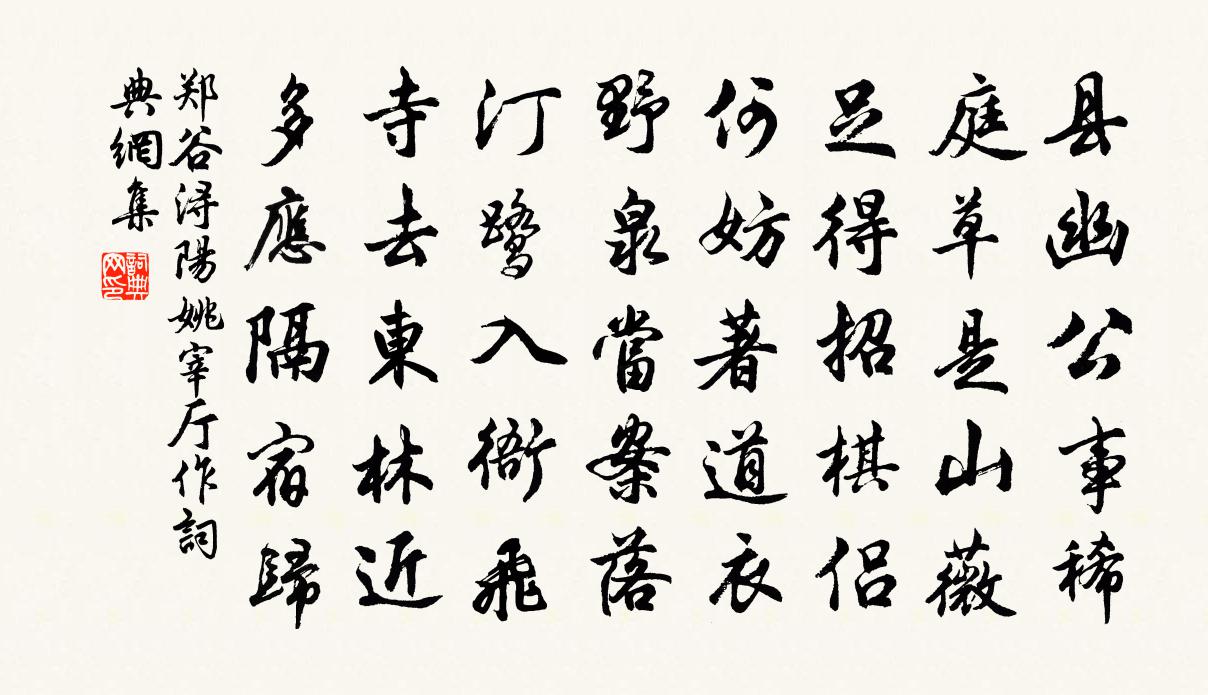 县幽公事稀
庭草是山薇
足得招棋侣
何妨著道衣
野泉當案落
汀鹭入衙飛
寺去東林近
多應隔宿歸
郑谷浔陽姚宰厅作詞
典網集
詞典
网印